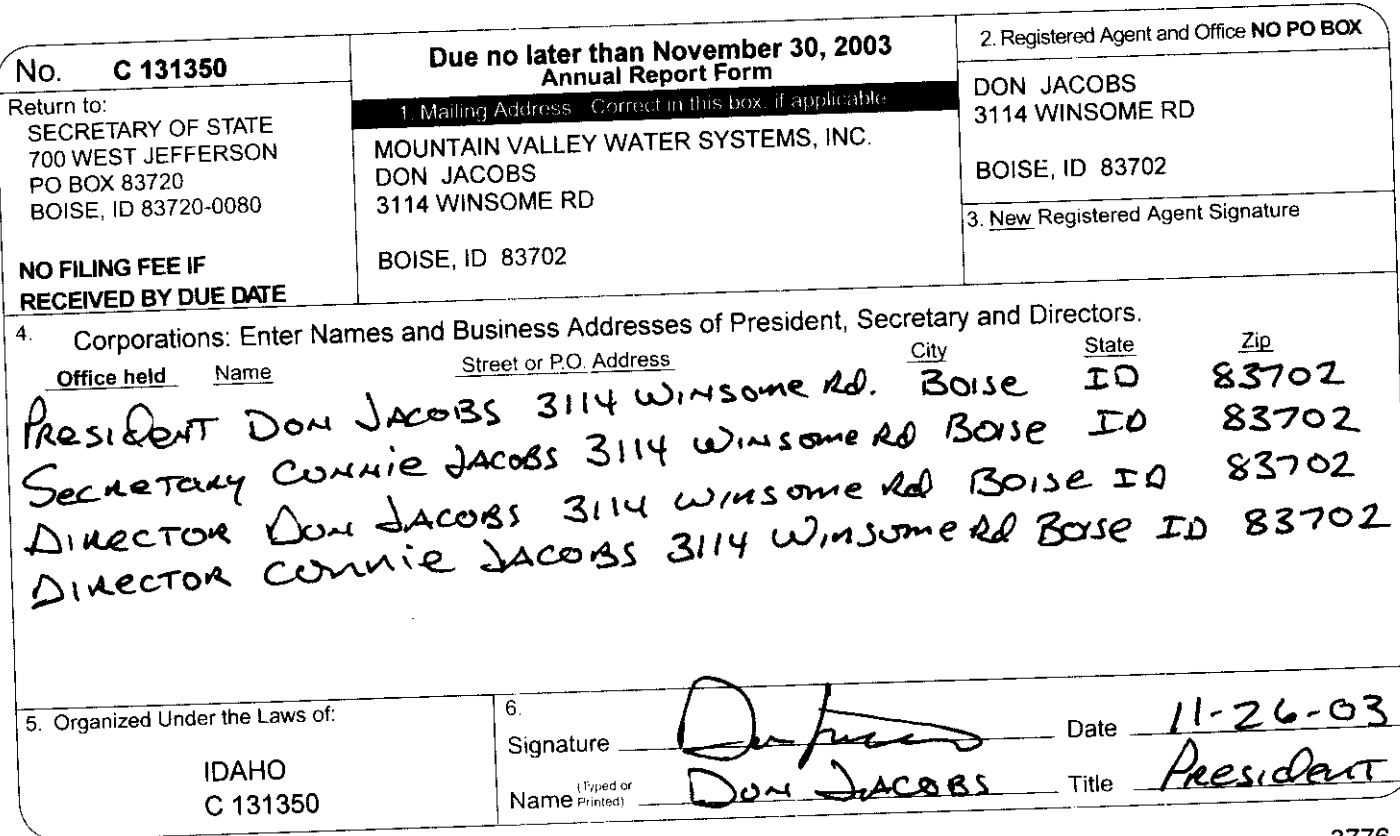 No. C 131350
Return to:
SECRETARY OF STATE
700 WEST JEFFERSON
PO BOX 83720
BOISE, ID 83720-0080
NO FILING FEE IF
RECEIVED BY DUE DATE
Due no later than November 30, 2003
Annual Report Form
1. Mailing Address Correct in this box, if applicable
MOUNTAIN VALLEY WATER SYSTEMS, INC.
DON JACOBS
3114 WINSOME RD
BOISE, ID 83702
2. Registered Agent and Office NO PO BOX
DON JACOBS
3114 WINSOME RD
BOISE, ID 83702
3. New Registered Agent Signature
4. Corporations: Enter Names and Business Addresses of President, Secretary and Directors.
Office held Name Street or P.O. Address City State Zip
President Don Jacobs 3114 Winsome Rd. Boise ID 83702
Secretary Connie Jacobs 3114 Winsome Rd Boise ID 83702
Director Don Jacobs 3114 Winsome Rd Boise ID 83702
Director Connie Jacobs 3114 Winsome Rd Boise ID 83702
5. Organized Under the Laws of:
IDAHO
C 131350
6.
Signature Don Jacobs Date 11-26-03
Name (Typed or Printed) Don Jacobs Title President